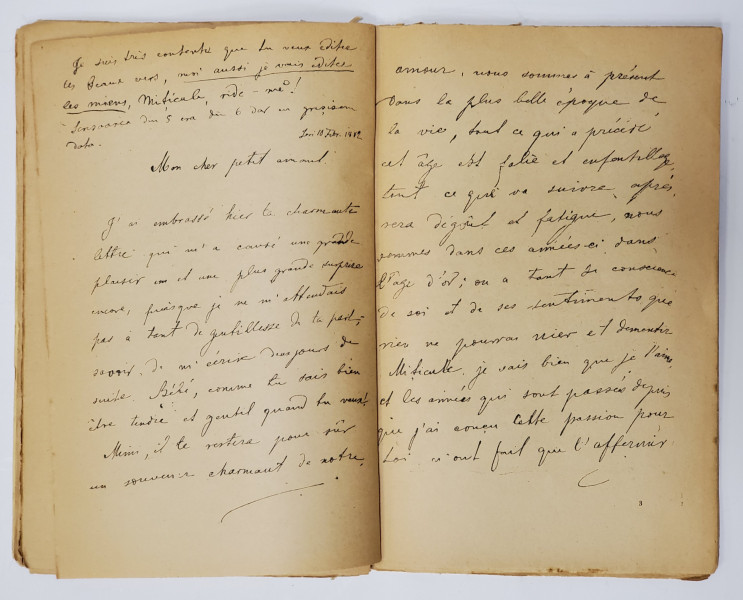 Je suis très contente que tu veux editer
tes beaux vers, moi aussi je vais editer
les miens, Miticule, ride-me!
Scrisoarea din 5 era din 6 dar cu greşeală
data. Iasi 10 Febr. 1882
Mon cher petit amant!
J'ai embrassé hier ta charmante
lettre qui m'a causé une grande
plaisir et une plus grande surprise
encore, puisque je ne m'attendais
pas à tant de gentillesse de ta part;
savoir de m'écrire deux jours de
suite. Bébé, comme tu sais bien
être tendre et gentil quand tu veux!
Mimi, il te restera pour sûr
un souvenir charmant de notre
amour, nous sommes à présent
dans la plus belle époque de
la vie, tout ce qui a précédé
cet âge est folie et enfantillage,
tout ce qui va suivre après,
sera dégoût et fatigue, nous
sommes dans ces années-ci dans
l'âge d'or; on a tant de conscience
de soi et de ses sentiments que
rien ne pourra nier et dementir.
Miticule, je sais bien que je t'aime
et les années qui sont passées depuis
que j'ai conçu cette passion pour
toi n'ont fait que l'affermir.
3